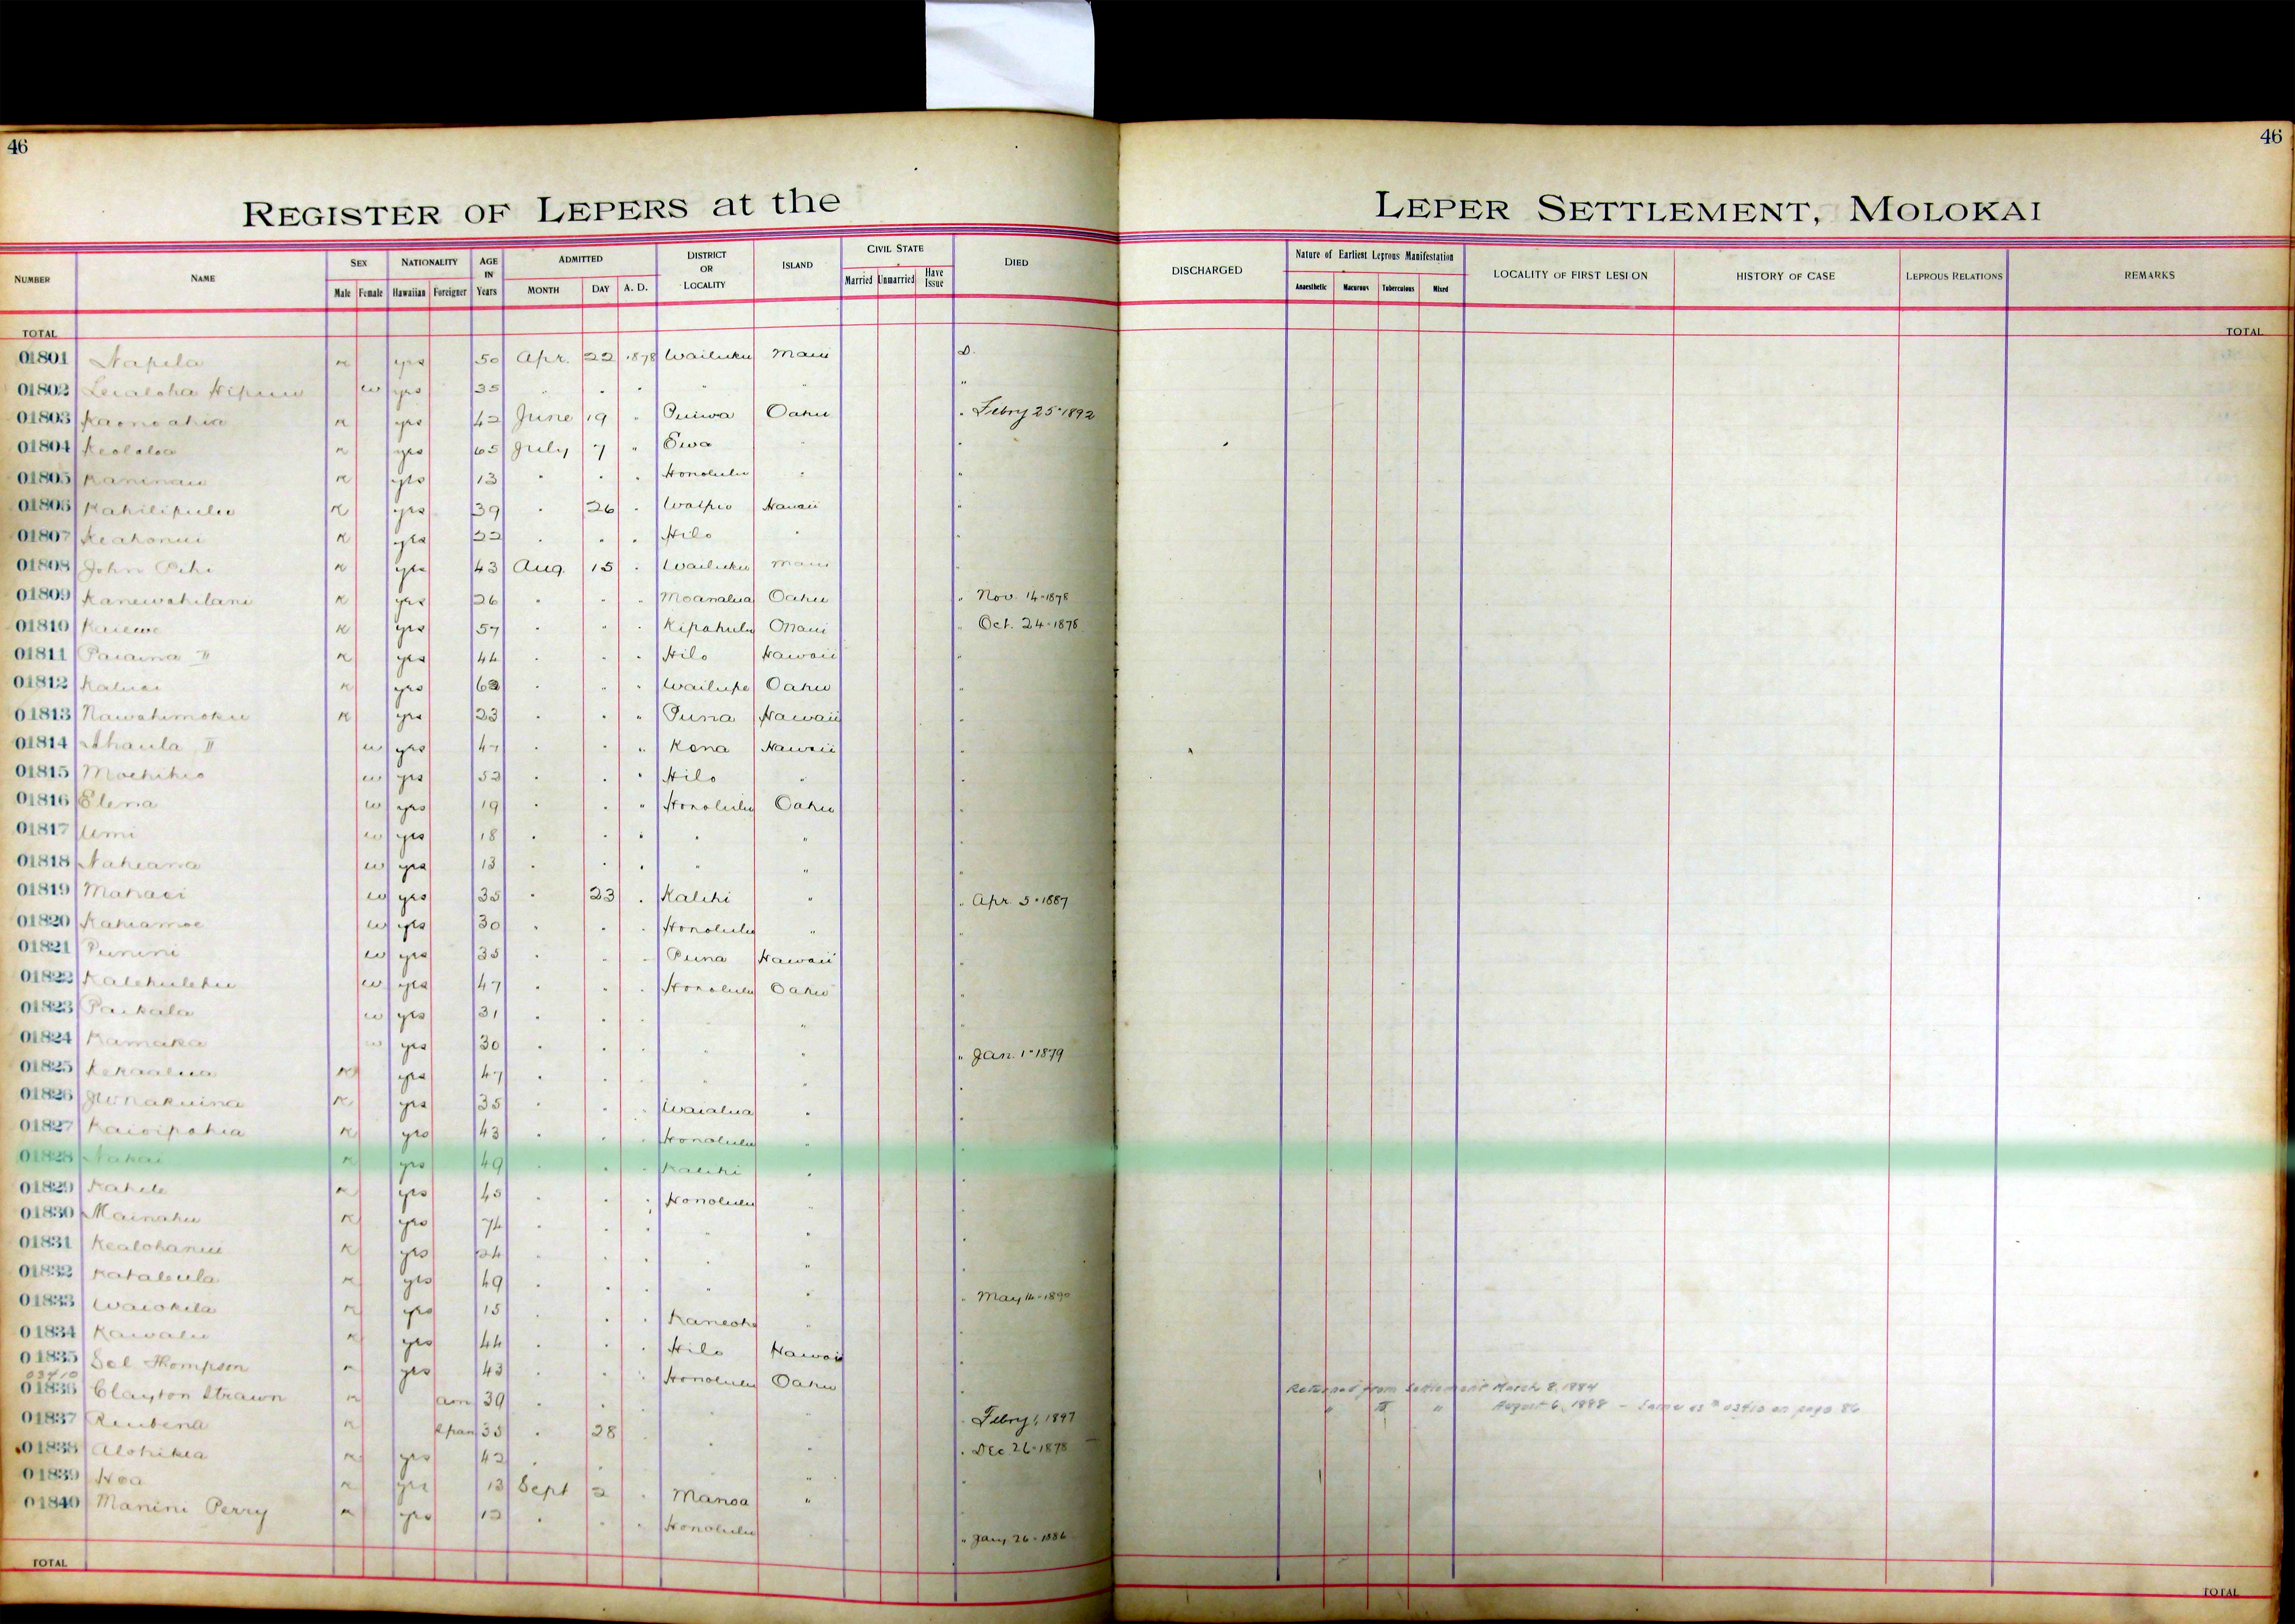 46
46
REGISTER OF LEPERS at the LEPER SETTLEMENT, MOLOKAI
NUMBER NAME SEX Male Female NATIONALITY Hawaiian Foreigner AGE IN Years ADMITTED MONTH DAY A. D. DISTRICT OR LOCALITY ISLAND CIVIL STATE Married Unmarried Have Issue DIED DISCHARGED Nature of Earliest Leprous Manifestation Anaesthetic Macurous Tuberculous Mixed LOCALITY OF FIRST LESION HISTORY OF CASE LEPROUS RELATIONS REMARKS
TOTAL TOTAL
01801 Napela m yes 50 Apr. 22 1878 Wailuku Maui D.
01802 Leialoha w yes 35 " " " " " "
01803 Kaonoahia m yes 42 June 19 " Puiwa Oahu " Febry 25-1892
01804 Keololoa m yes 65 July 7 " Ewa " "
01805 Kaninau m yes 13 " " " Honolulu " "
01806 Kahilipulu m yes 39 " 26 " Waipio Hawaii "
01807 Keahonui m yes 22 " " " Hilo " "
01808 John m yes 43 Aug. 15 " Wailuku Maui "
01809 Kanewahilani m yes 26 " " " Moanalua Oahu " Nov. 14-1878
01810 Kaiewe m yes 57 " " " Kipahulu Maui " Oct. 24-1878
01811 Paiaina II m yes 44 " " " Hilo Hawaii "
01812 Kaluai m yes 62 " " " Wailupe Oahu "
01813 Nawahimoku m yes 23 " " " Puna Hawaii "
01814 Ahaula II w yes 47 " " " Kona Hawaii "
01815 Moehihio w yes 52 " " " Hilo " "
01816 Elena w yes 19 " " " Honolulu Oahu "
01817 Umi w yes 18 " " " " " "
01818 Nahiana w yes 13 " " " " " "
01819 Mahaei w yes 35 " 23 " Kalihi " " Apr. 5-1887
01820 Kahiamoe w yes 30 " " " Honolulu " "
01821 Punini w yes 35 " " " Puna Hawaii "
01822 Kalehulehu w yes 47 " " " Honolulu Oahu "
01823 Paikala w yes 31 " " " " "
01824 Kamaka w yes 30 " " " " " Jan. 1-1879
01825 Kekaalua m yes 47 " " " "
01826 m yes 35 " " " Waialua " "
01827 Kaioipahia m yes 43 " " " Honolulu " "
01828 Nahai m yes 49 " " " Kalihi " "
01829 Kahele m yes 45 " " " Honolulu " "
01830 Mainahu m yes 74 " " " " "
01831 Kealohanui m yes 24 " " " " "
01832 Kahaleula m yes 49 " " " " " May 14-1890
01833 Waiohila m yes 15 " " " Kaneohe " "
01834 Kawalu m yes 44 " " " Hilo Hawaii "
01835 Sol Thompson m yes 43 " " " Honolulu Oahu "
03410
01836 Clayton Strawn m am 39 " " " " " Febry 1, 1897 Returned from Settlement March 8, 1884
" " " August 6, 1888 - Same as # 03410 on page 86
01837 Reubena m Span 35 " 28 " " " Dec 26-1878
01838 Alohikea m yes 42 " " " "
01839 Hoa m yes 13 Sept 2 " Manoa "
01840 Manini Perry m yes 12 " " " Honolulu " Jany 26-1886
TOTAL TOTAL